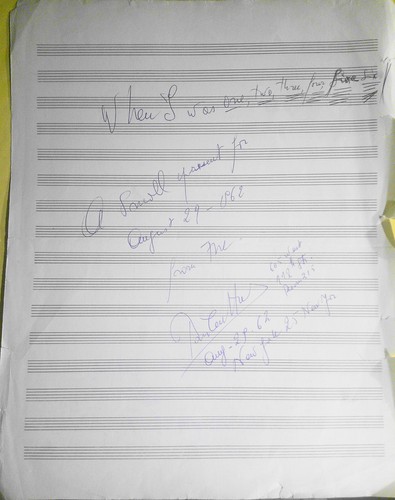 When I was one, two, three, four five six
A Small present for
August 29 - 1962
from the
Aug - 29 - 62
New York 25 New Yor